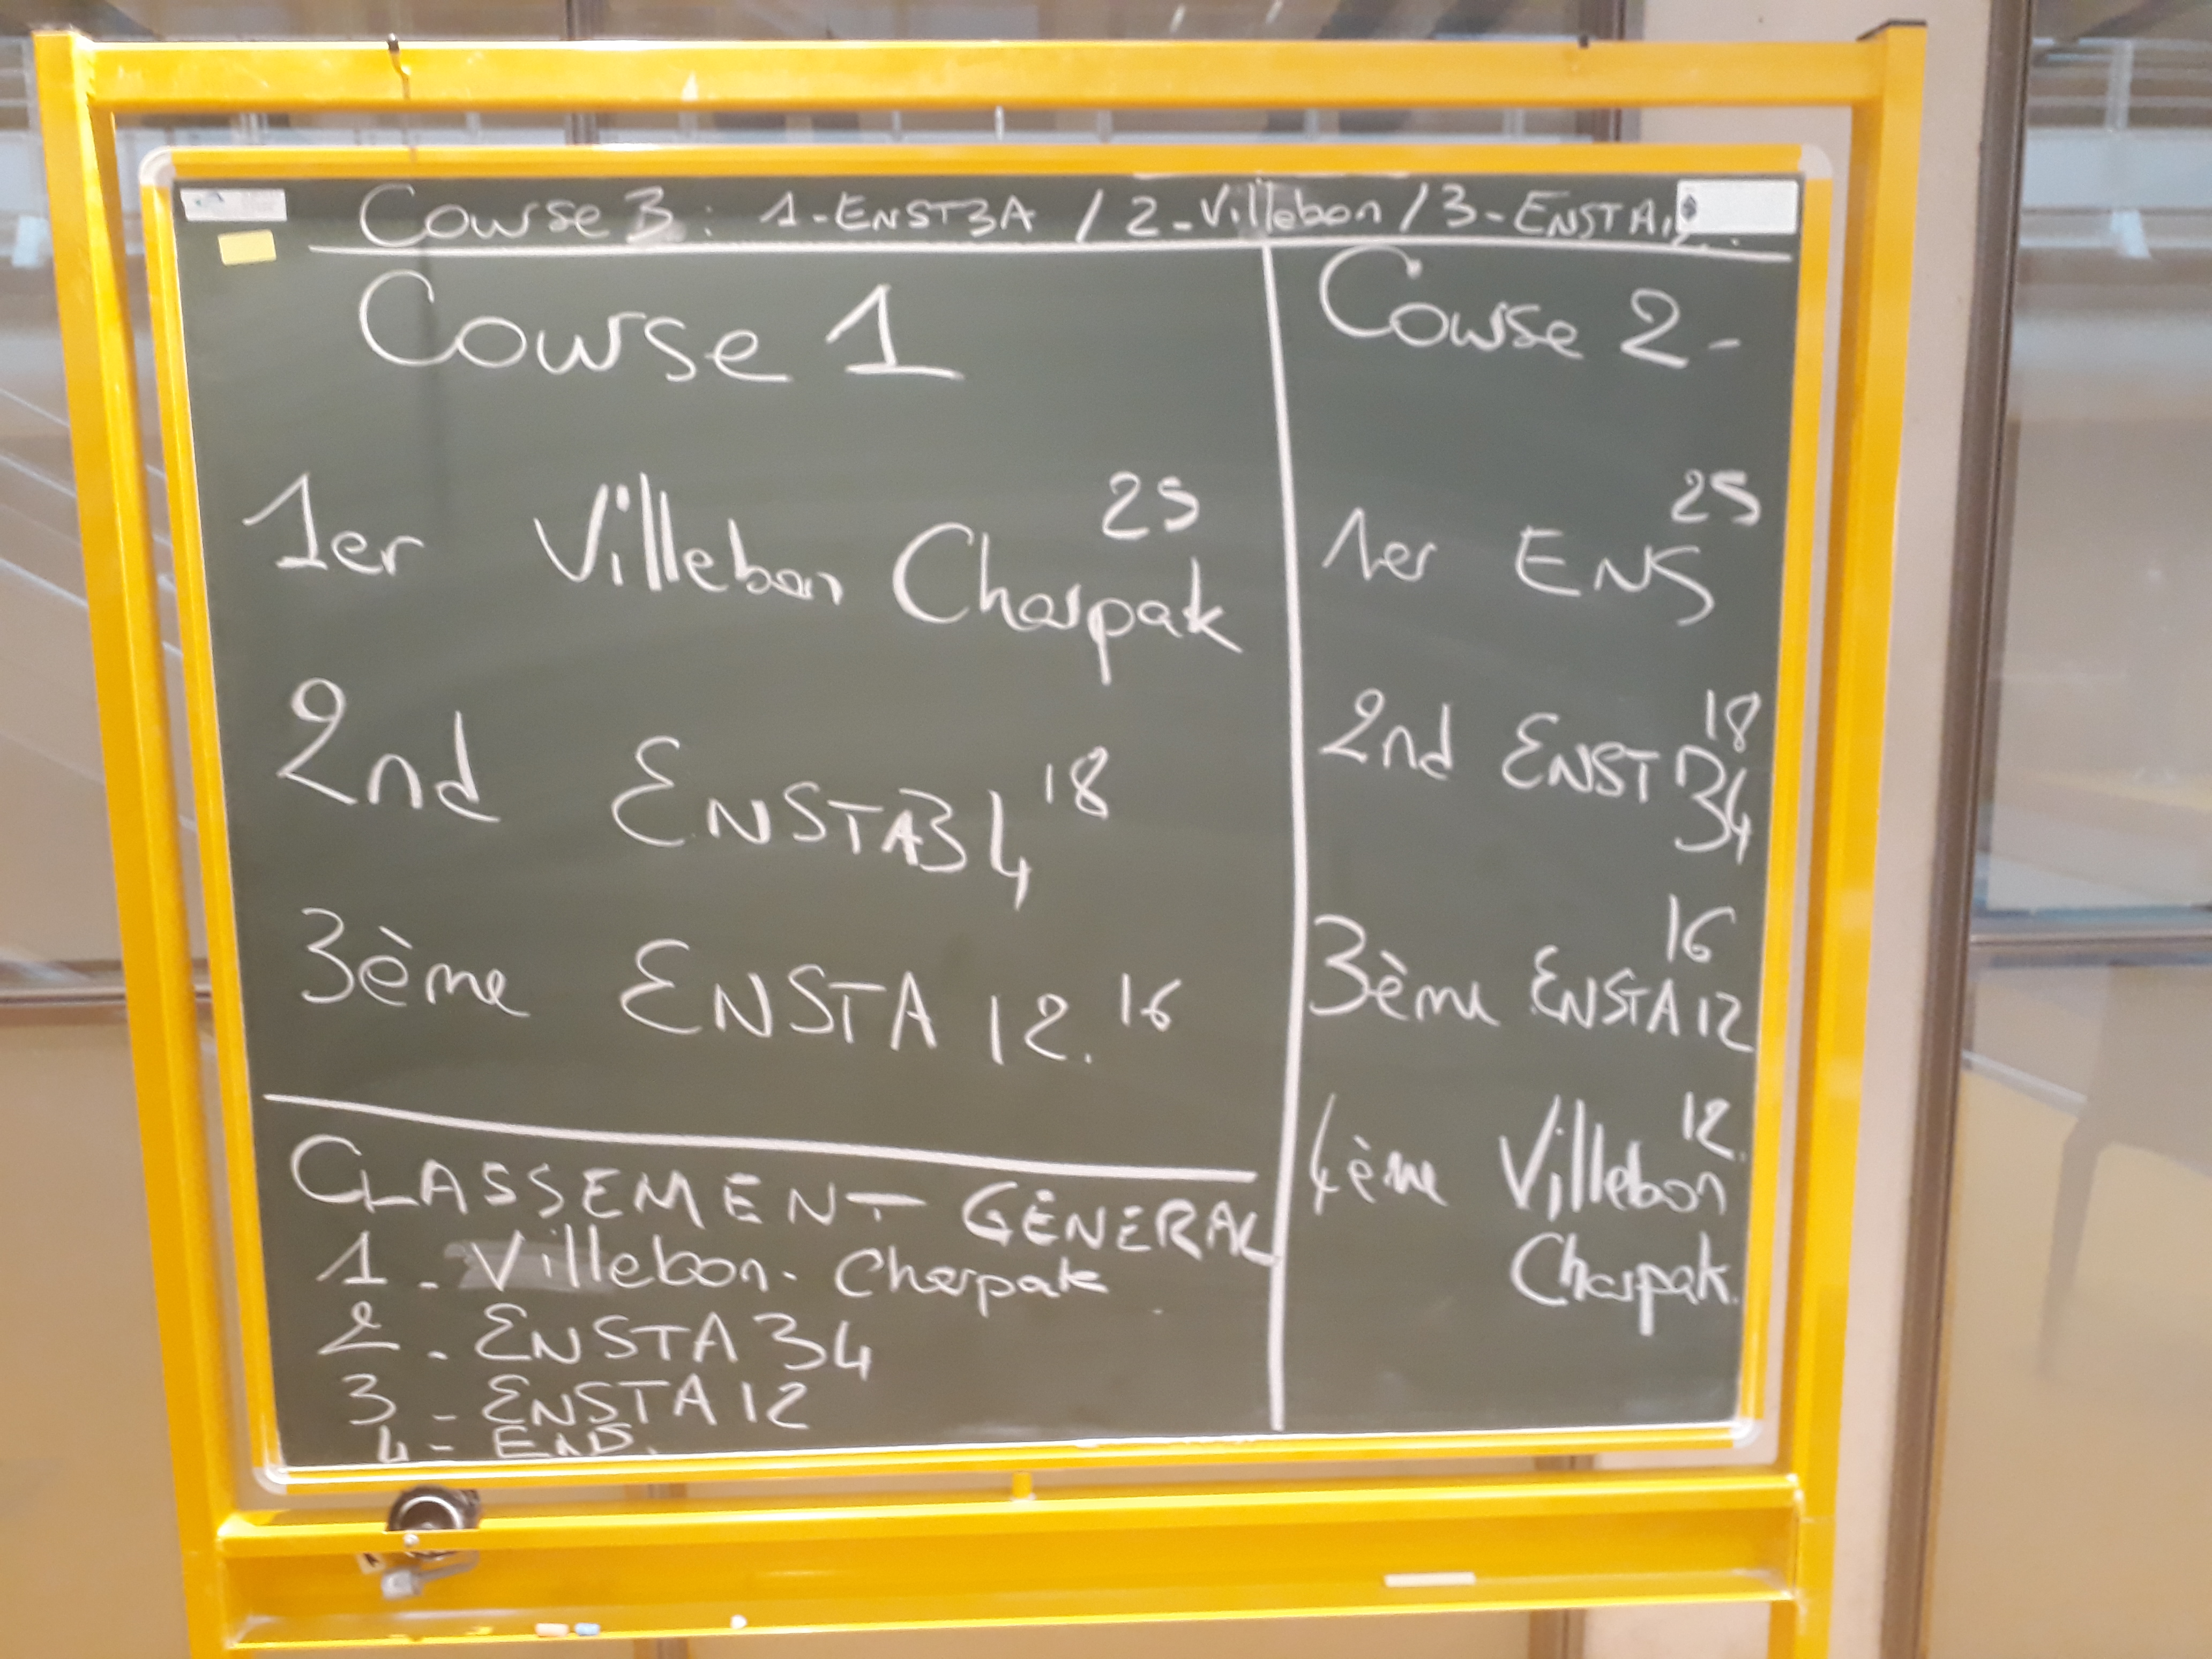 Course 3: 1-ENST3A / 2-Villebon / 3-ENSTA
Course 1
1er Villebon Charpak 25
2nd ENSTA34 18
3ème ENSTA 12. 16
CLASSEMENT GÉNÉRAL
1 - Villebon - Charpak
2 - ENSTA 34
3 - ENSTA 12
4 -
Course 2 -
25
1er ENS
18
2nd ENST
34
16
3ème ENSTA12
12.
4ème Villebon
Charpak.